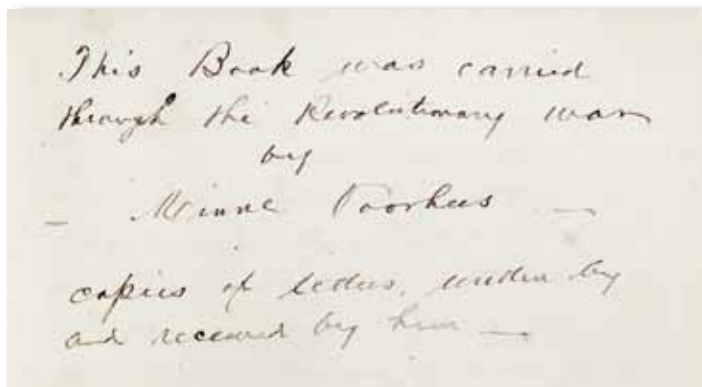 This Book was carried
through the Revolutionary war
by
– Minne Voorhees –
copies of letters, written by
and received by him –